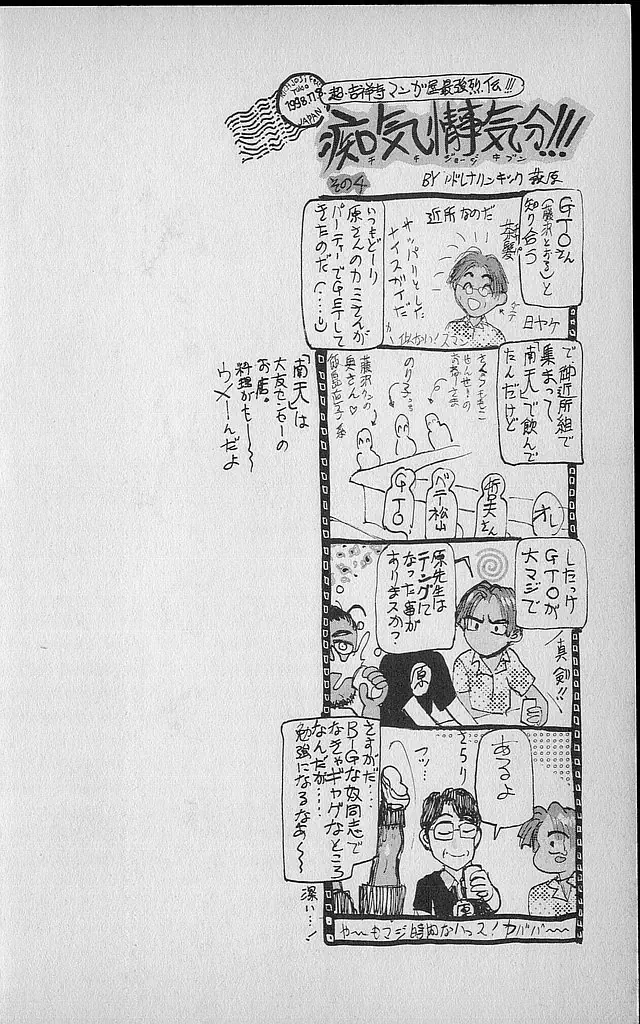 1998.11.8.
JAPAN
超・吉祥寺マンガ屋最強烈伝!!!
痴気情事気分!!!
チキジョージキブン
その4
GTOさん
(藤沢とおる)と
知り合う
近所なのだ
茶髪
サッパリとした
ナイスガイだ
日ヤケ
似てない!スマン
いつもどーり
原さんのカミさんが
パーティーでGETして
きたのだ(……)
で、御近所組で
集まって
「南天」で飲んで
たんだけど
さくらももこ
せんせーの
お母さま
のり子っち
藤沢クンの
奥さん♡
飯島直子系
GTO
ベテ松山
哲夫さん
オレ
「南天」は
大友センセーの
お店。
料理がも〜〜
ウメーんだよ
したっけ
GTOが
大マジで
真剣!!
原先生は
テングに
なった事が
ありまスか?
原
あるよ
さらり
フッ…
さすがだ…
BIGな奴同志で
なきゃギャグなところ
なんだが……
勉強になるなあ〜〜
深い…!
や〜〜もマジ時間ないっス!ガババ〜〜